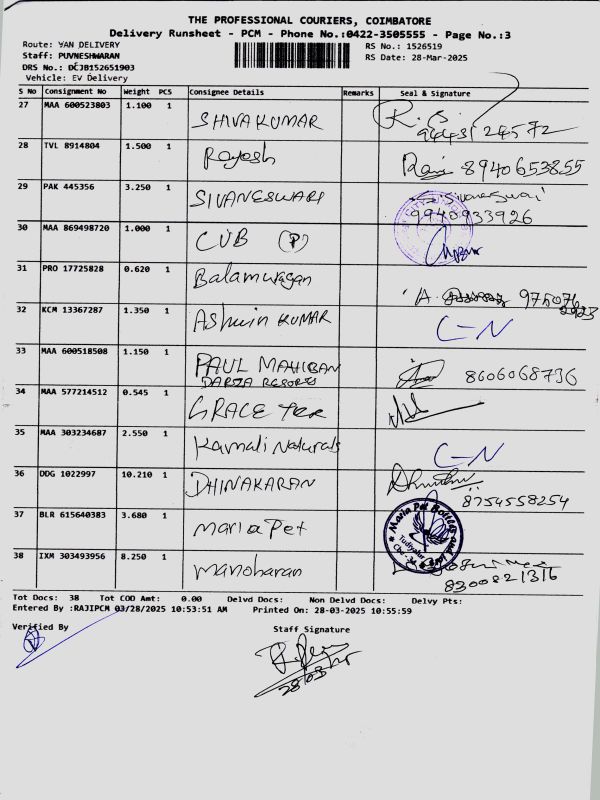 THE PROFESSIONAL COURIERS, COIMBATORE
Delivery Runsheet - PCM - Phone No.:0422-3505555 - Page No.:3
Route: VAN DELIVERY
RS No.: 1526519
Staff: PUVNESHWARAN
RS Date: 28-Mar-2025
DRS No.: DCJB152651903
Vehicle: EV Delivery
S No Consignment No Weight PCS Consignee Details Remarks Seal & Signature
27 MAA 600523803 1.100 1 SHIVAKUMAR R.S. 9443124572
28 TVL 8914804 1.500 1 Rajesh 8940653855
29 PAK 445356 3.250 1 SIVANESWARI 9940933926
30 MAA 869498720 1.000 1 CUB (P)
31 PRO 17725828 0.620 1 Balamurugan A.
32 KCM 13367287 1.350 1 Ashwin KUMAR C-N
33 MAA 600518508 1.150 1 PAUL MAHIBAN 8606068736
34 MAA 577214512 0.545 1 GRACE
35 MAA 303234687 2.550 1 Kamali Naturals C-N
36 DDG 1022997 10.210 1 DHINAKARAN 8754558254
37 BLR 615640383 3.680 1 Maria Pet Maria Pet Bottles and
38 IXM 303493956 8.250 1 Manoharan 8300821316
Tot Docs: 38 Tot COD Amt: 0.00 Delvd Docs: Non Delvd Docs: Delvy Pts:
Entered By :RAJIPCM 03/28/2025 10:53:51 AM Printed On: 28-03-2025 10:55:59
Verified By
Staff Signature